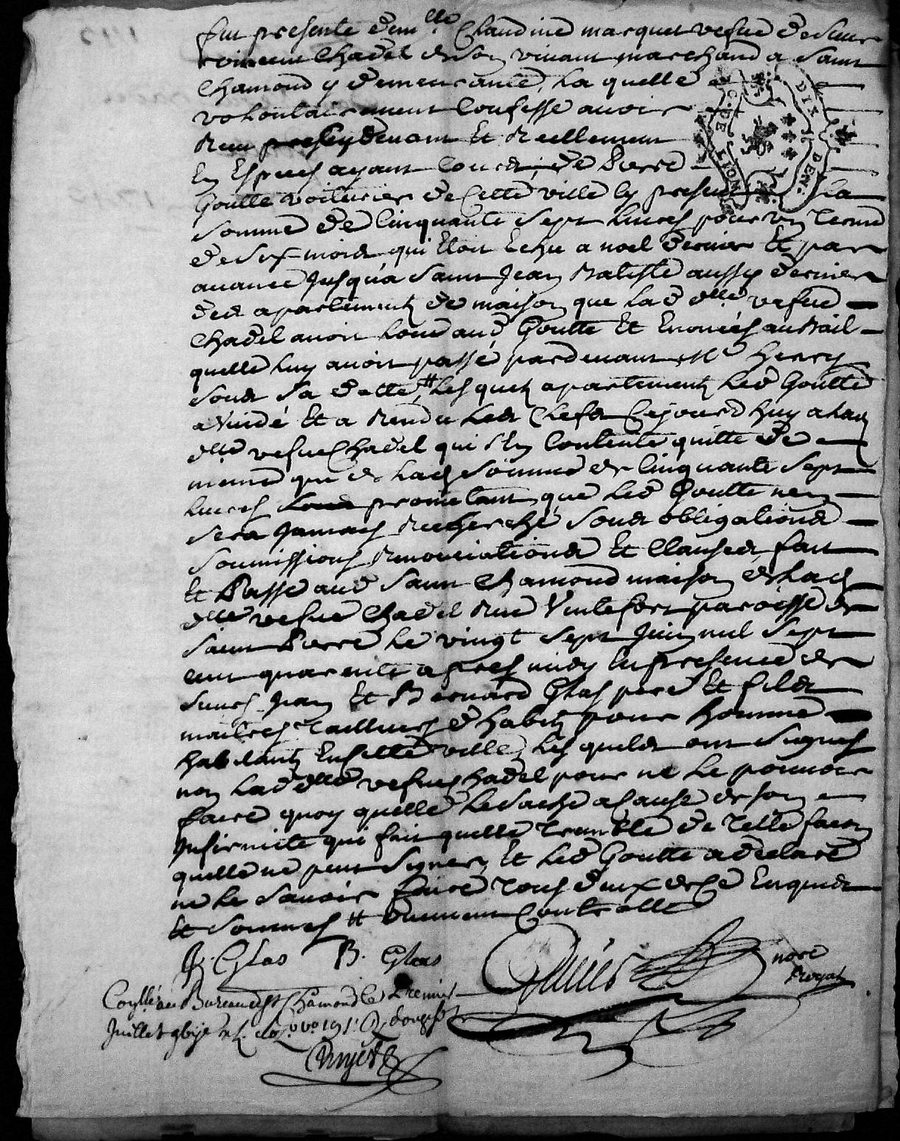 fut presente dem.lle Claudine marquet vefue de Sieur
vincent Chadel de Son vivant marchand a Saint
Chamond y demeurante, la quelle
volontairement Confesse avoir
Receu presentement Et Reellement
En Especes ayant Cours, de Pierre
Goutte voiturier de Cette ville les present La
Somme de Cinquante Sept Livres pour un terme
de Six mois qui Etoit Echu a noel dernier Et par
avance Jusqua Saint Jean Batiste aussy dernier
des apartements de maison que Lad. dlle vefue
Chadel avoit Loué aud. Goutte Et Enoncés au Bail
quelle luy avoit passé pardevant Me Henry
Sous Sa datte, Lesquels apartements Led. Goutte
a vuidé Et a Rendu Les Clefs Cejourd'huy a Lad.
dlle vefue Chadel qui S'En Contente quitte de
meme que de Lad. Somme de Cinquante Sept
Livres promettant que Led. Goutte nen
Sera Jamais Recherché Sous obligations
Soumissions Renonciations Et Clauses fait
Et Passé aud. Saint Chamond maison de Lad.
dlle vefue Chadel Rue Vintefort paroisse de
Saint Pierre Le vingt Sept Juin mil Sept
cent quarente apres midy En presence de
Sieurs Jean Et Bernard Glas pere Et fils
maitres Tailleurs d'habits pour homme
habitants En Cette ville, Les quels ont Signé
non Lad. dlle vefue Chadel pour ne Le pouvoir
faire quoy quelle Le Sache a Cause de Son
Infirmité qui fait quelle Tremble de Telle facon
quelle ne peut Signer, Et Led. Goutte a declaré
ne Le Savoir faire Tous deux de Ce Enquis
Et Sommés Duement Controllé
J. Glas B. Glas
nore
Royal
Conllé au Bureau de St Chamond Le Premier
Juillet
DIX D. DEN.